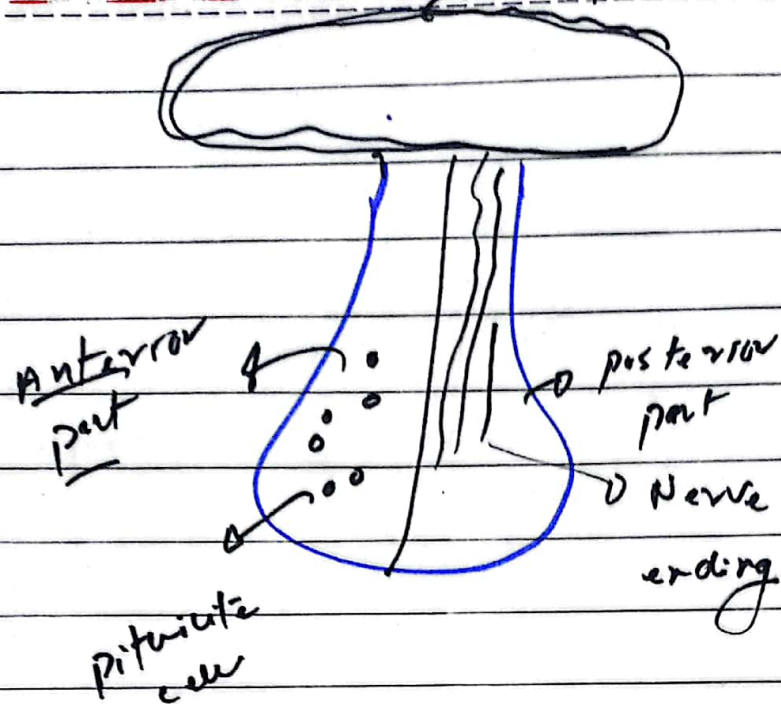 Anterior
part
posterior
part
Nerve
ending
pituicite
cell